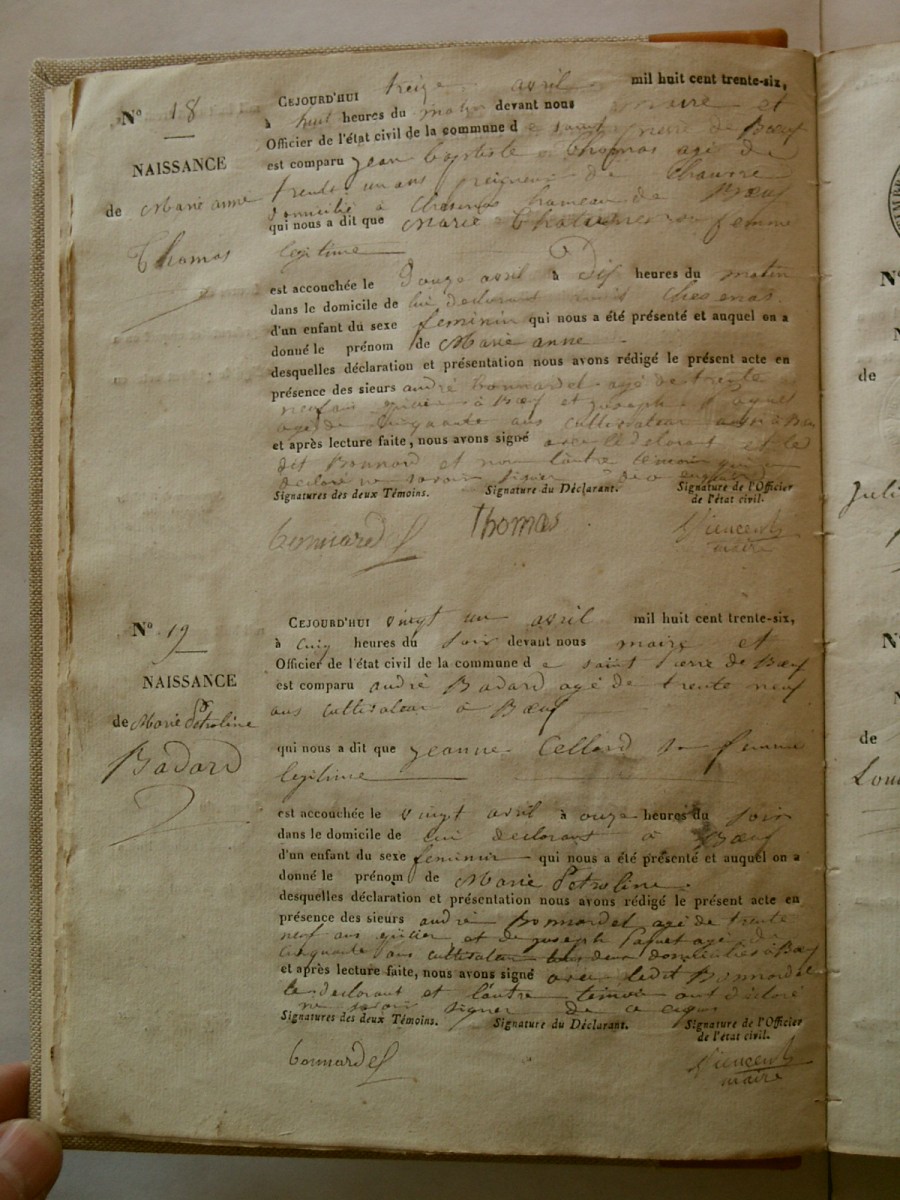 N° 18
NAISSANCE
de Marie anne
Thomas
CEJOURD'HUI treize avril mil huit cent trente-six,
à huit heures du matin devant nous maire et
Officier de l'état civil de la commune d e saint pierre de Bœuf
est comparu jean baptiste Thomas agé de
trente un ans peigneur de chanvre
domicilié à chesenas hameau de Bœuf
qui nous a dit que Marie sa femme
legitime
est accouchée le Douze avril à Dix heures du matin
dans le domicile de lui declarant chesenas
d'un enfant du sexe feminin qui nous a été présenté et auquel on a
donné le prénom de Marie anne
desquelles déclaration et présentation nous avons rédigé le présent acte en
présence des sieurs andré bonnardel agé de trente
neuf ans epicier à Bœuf et joseph paquet
agé de cinquante ans cultivateur à Bœuf
et après lecture faite, nous avons signé avec le declarant et le
dit Bonnard et non l'autre temoin qui a
declaré ne savoir signer de ce enquis
Signatures des deux Témoins. Signature du Déclarant. Signature de l'Officier
de l'état civil.
bonnardel Thomas Viencent
maire
N° 19
NAISSANCE
de Marie Petroline
Badard
CEJOURD'HUI vingt un avril mil huit cent trente-six,
à cinq heures du soir devant nous maire et
Officier de l'état civil de la commune d e saint Pierre de Bœuf
est comparu andré Badard agé de trente neuf
ans cultivateur à Bœuf
qui nous a dit que jeanne Cellard sa femme
legitime
est accouchée le vingt avril à onze heures du soir
dans le domicile de lui declarant à Bœuf
d'un enfant du sexe feminin qui nous a été présenté et auquel on a
donné le prénom de Marie Petroline.
desquelles déclaration et présentation nous avons rédigé le présent acte en
présence des sieurs andré Bonnardel agé de trente
neuf ans epicier et de joseph Paquet agé de
cinquante ans cultivateur tous deux domiciliés à Bœuf
et après lecture faite, nous avons signé avec ledit Bonnardel
le declarant et l'autre temoin ont déclaré
ne savoir signer de ce enquis
Signatures des deux Témoins. Signature du Déclarant. Signature de l'Officier
de l'état civil.
bonnardel Viencent
maire